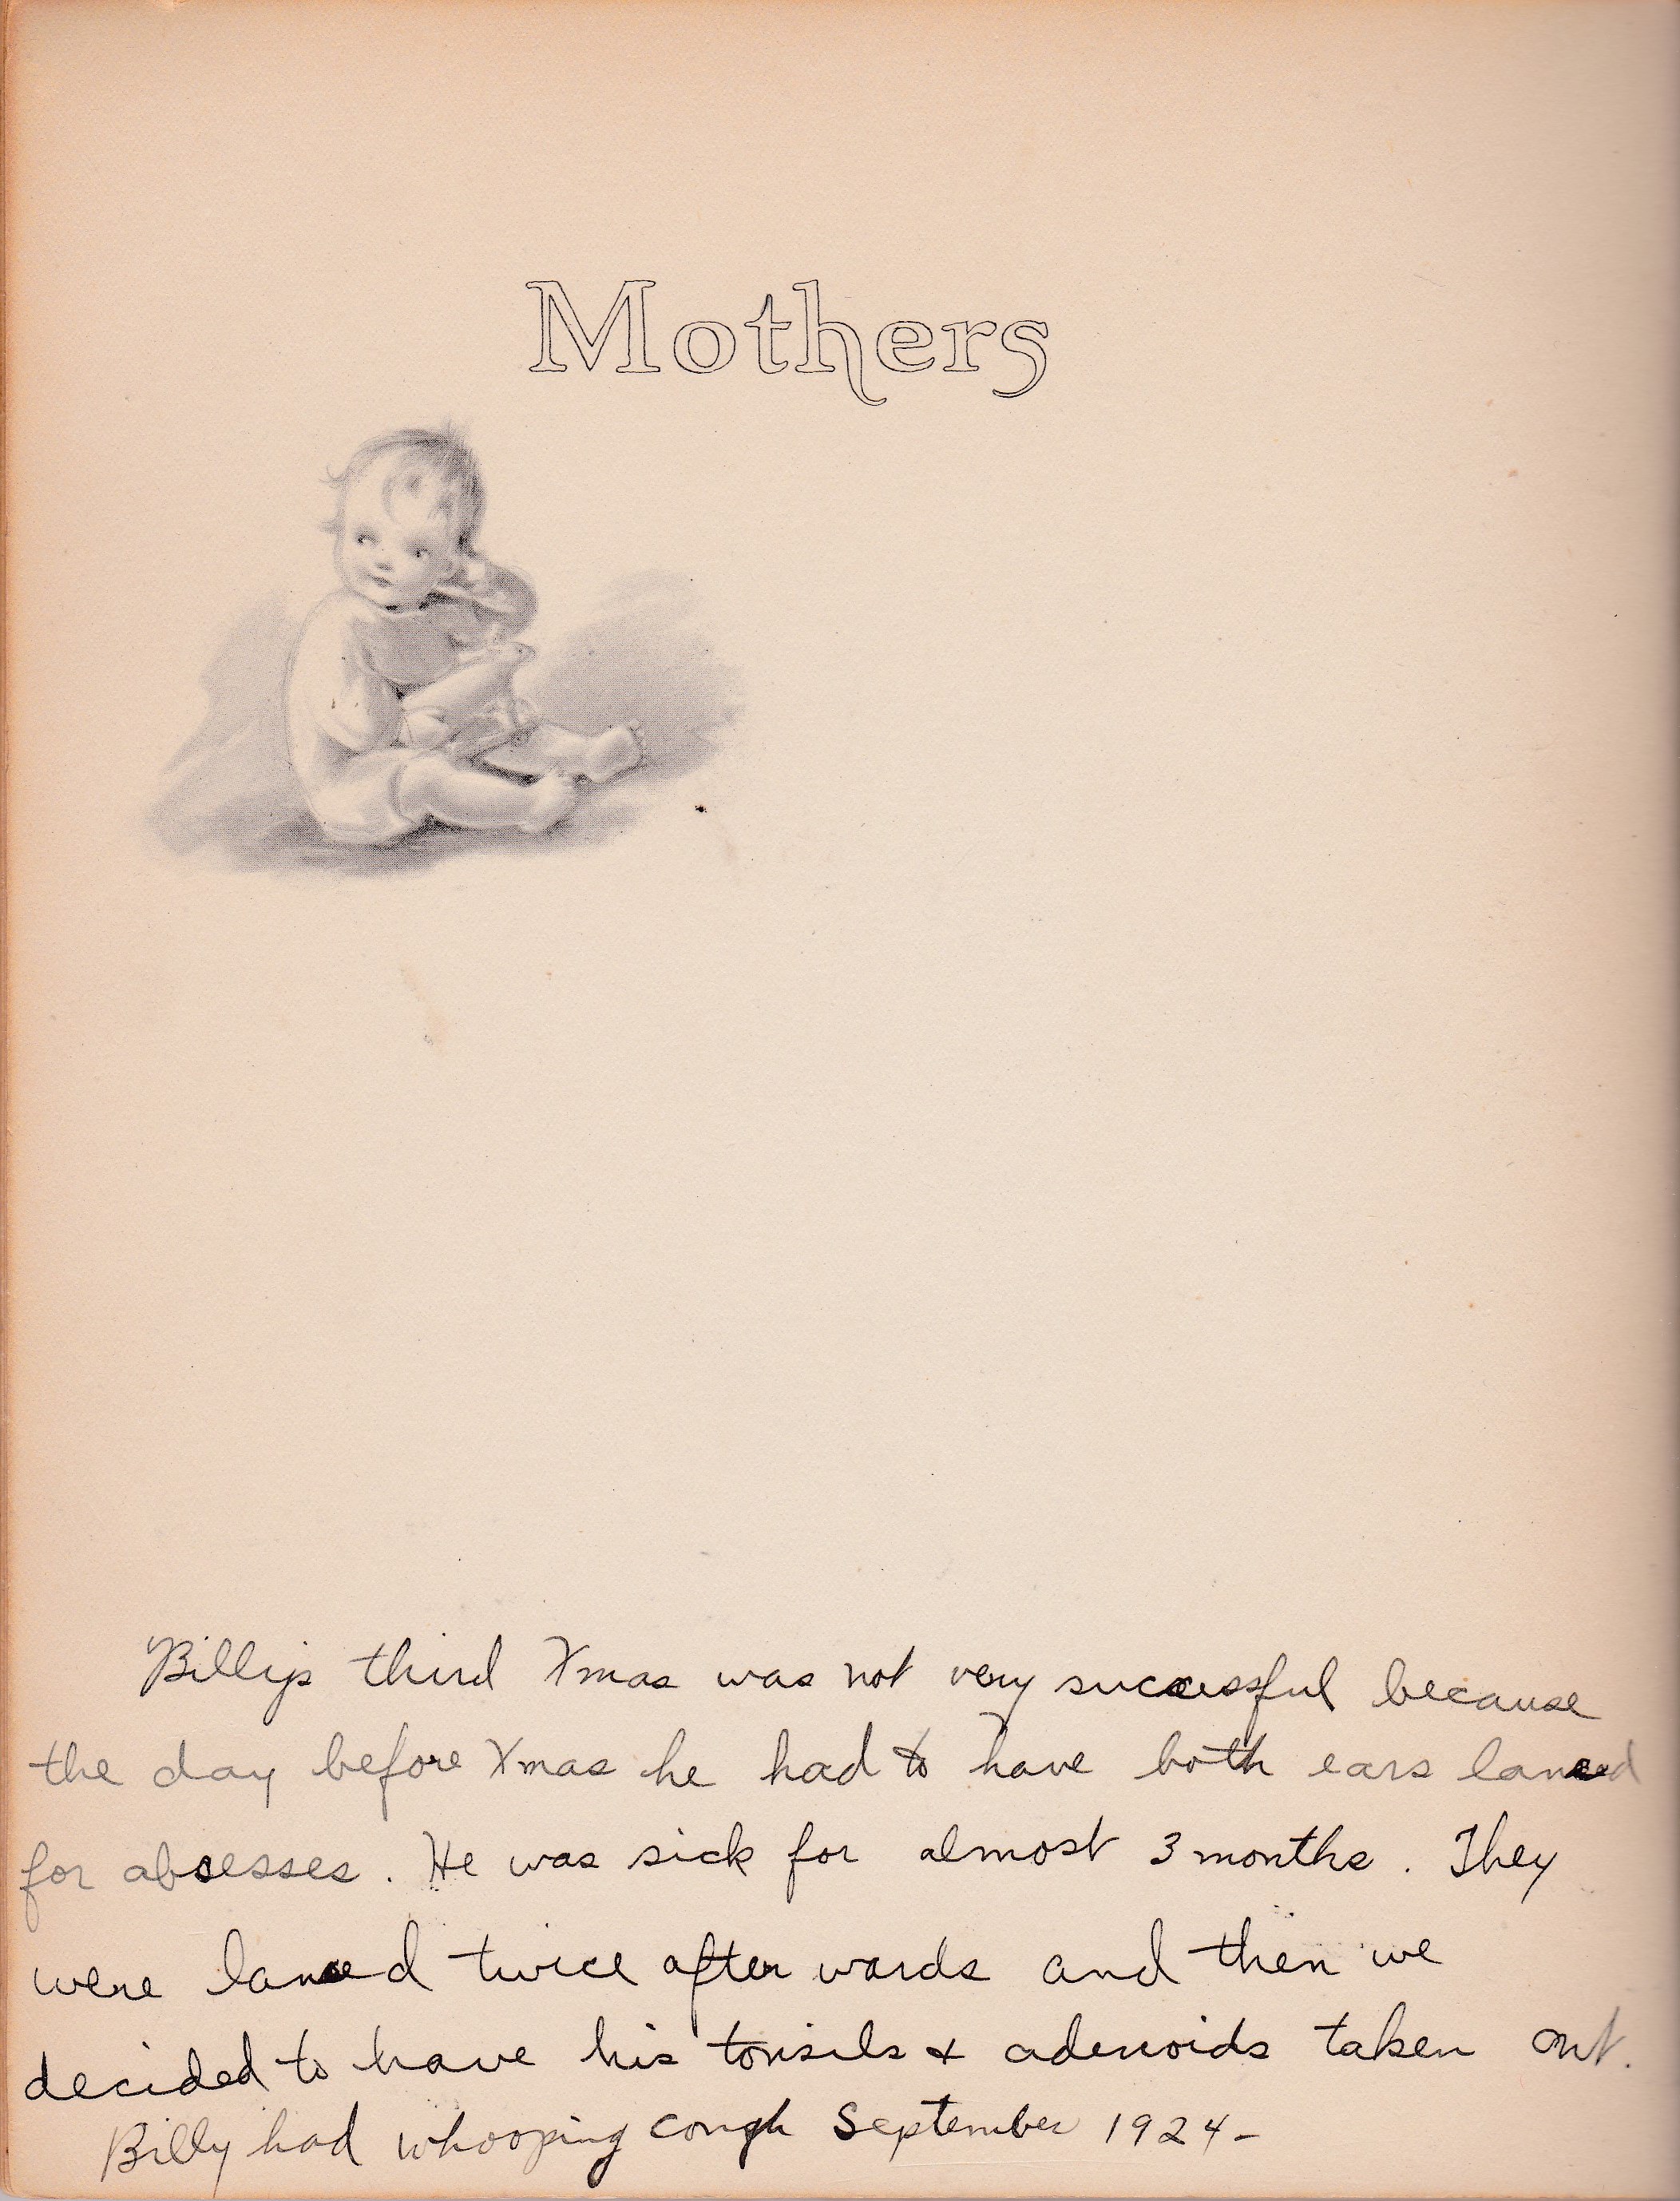 Mothers
Billy's third Xmas was not very successful because
the day before Xmas he had to have both ears lanced
for absesses. He was sick for almost 3 months. They
were lanced twice after wards and then we
decided to have his tonsils & adenoids taken out.
Billy had whooping cough September 1924-